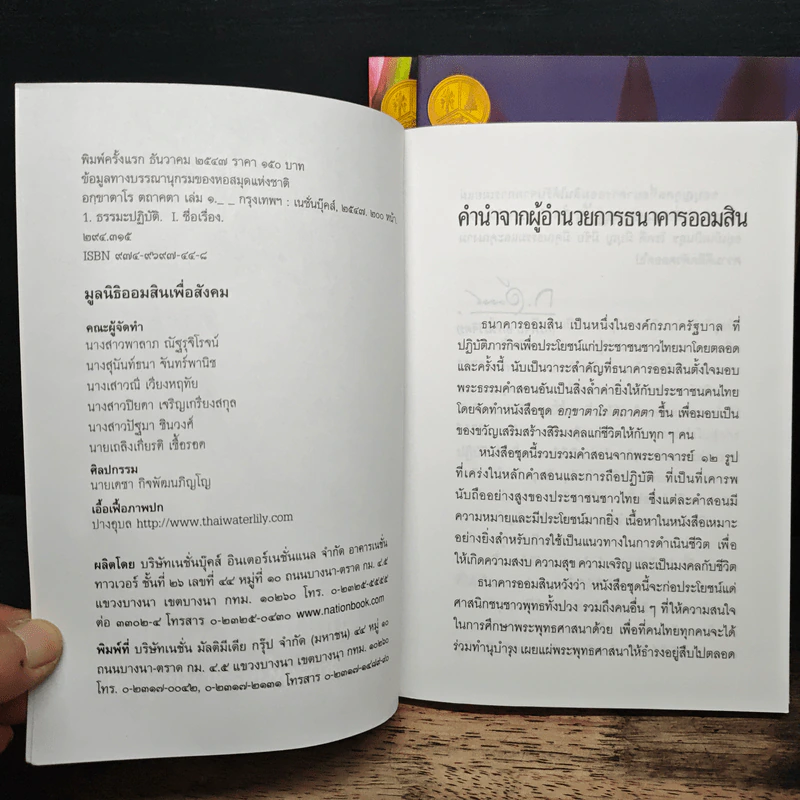 พิมพ์ครั้งแรก ธันวาคม ๒๕๔๗ ราคา ๑๕๐ บาท
ข้อมูลทางบรรณานุกรมของหอสมุดแห่งชาติ
อกฺขาตาโร ตถาคตา เล่ม ๑._ _ กรุงเทพฯ : เนชั่นบุ๊คส์, ๒๕๔๗. ๒๐๐ หน้า.
1. ธรรมะปฏิบัติ. I. ชื่อเรื่อง.
๒๙๔.๓๑๕
ISBN ๙๗๔-๙๖๙๗-๔๔-๘
มูลนิธิออมสินเพื่อสังคม
คณะผู้จัดทำ
นางสาวพาลาภ ณัฐรุจิโรจน์
นางสุนันท์ธนา จันทร์พานิช
นางเสาวณี เวียงหฤทัย
นางสาวปิยดา เจริญเกรียงสกุล
นางสาวปัฐมา ชินวงศ์
นายเถลิงเกียรติ เชื้อรอด
ศิลปกรรม
นายเดชา กิจพัฒนภิญโญ
เอื้อเฟื้อภาพปก
ปางอุบล http://www.thaiwaterlily.com
ผลิตโดย บริษัทเนชั่นบุ๊คส์ อินเตอร์เนชั่นแนล จำกัด อาคารเนชั่น
ทาวเวอร์ ชั้นที่ ๒๖ เลขที่ ๔๔ หมู่ที่ ๑๐ ถนนบางนา-ตราด กม. ๔.๕
แขวงบางนา เขตบางนา กทม. ๑๐๒๖๐ โทร. ๐-๒๓๒๕-๕๕๕๕
ต่อ ๓๓๐๒-๔ โทรสาร ๐-๒๓๒๕-๐๔๓๐ www.nationbook.com
พิมพ์ที่ บริษัทเนชั่น มัลติมีเดีย กรุ๊ป จำกัด (มหาชน) ๔๔ หมู่ ๑๐
ถนนบางนา-ตราด กม. ๔.๕ แขวงบางนา เขตบางนา กทม. ๑๐๒๖๐
โทร. ๐-๒๓๑๗-๐๐๔๒, ๐-๒๓๑๗-๒๑๓๑ โทรสาร
คำนำจากผู้อำนวยการธนาคารออมสิน
ธนาคารออมสิน เป็นหนึ่งในองค์กรภาครัฐบาล ที่
ปฏิบัติภารกิจเพื่อประโยชน์แก่ประชาชนชาวไทยมาโดยตลอด
และครั้งนี้ นับเป็นวาระสำคัญที่ธนาคารออมสินตั้งใจมอบ
พระธรรมคำสอนอันเป็นสิ่งล้ำค่ายิ่งให้กับประชาชนคนไทย
โดยจัดทำหนังสือชุด อกฺขาตาโร ตถาคตา ขึ้น เพื่อมอบเป็น
ของขวัญเสริมสร้างสิริมงคลแก่ชีวิตให้กับทุก ๆ คน
หนังสือชุดนี้รวบรวมคำสอนจากพระอาจารย์ ๑๒ รูป
ที่เคร่งในหลักคำสอนและการถือปฏิบัติ ที่เป็นที่เคารพ
นับถืออย่างสูงของประชาชนชาวไทย ซึ่งแต่ละคำสอนมี
ความหมายและมีประโยชน์มากยิ่ง เนื้อหาในหนังสือเหมาะ
อย่างยิ่งสำหรับการใช้เป็นแนวทางในการดำเนินชีวิต เพื่อ
ให้เกิดความสงบ ความสุข ความเจริญ และเป็นมงคลกับชีวิต
ธนาคารออมสินหวังว่า หนังสือชุดนี้จะก่อประโยชน์แด่
ศาสนิกชนชาวพุทธทั้งปวง รวมถึงคนอื่น ๆ ที่ให้ความสนใจ
ในการศึกษาพระพุทธศาสนาด้วย เพื่อที่คนไทยทุกคนจะได้
ร่วมทำนุบำรุง เผยแผ่พระพุทธศาสนาให้ธำรงอยู่สืบไปตลอด